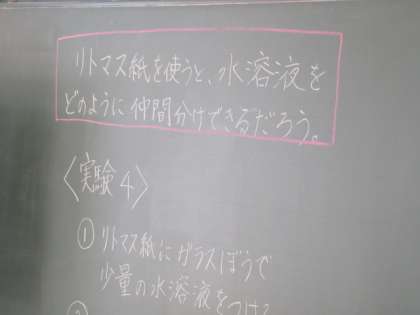 リトマス紙を使うと、水溶液を
どのように仲間分けできるだろう。
〈実験4〉
① リトマス紙にガラスぼうで
少量の水溶液をつけ